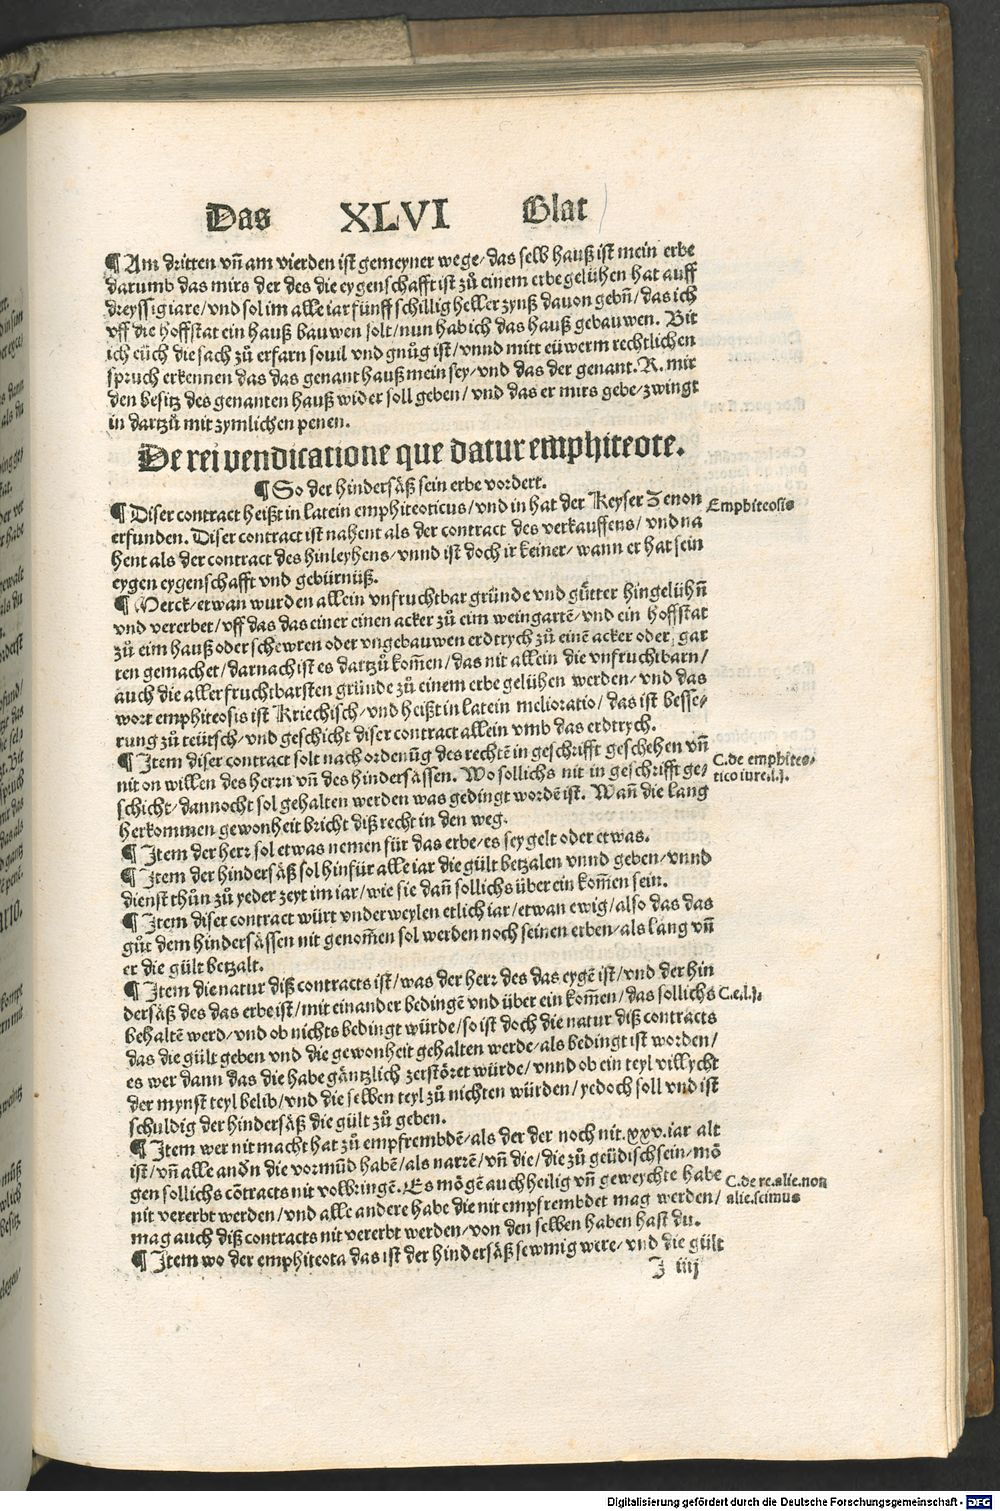 Das XLVI Glat
¶ Am dritten vñ am vierden ist gemeyner wege/ das selb hauß ist mein erbe
darumb das mirs der des die eygenschafft ist zů einem erbe gelühen hat auff
dreyssig iare/ vnd sol im alle iar fünff schillig heller zynß dauon gebñ/ das ich
vff die hoffstat ein hauß bauwen solt/ nun hab ich das hauß gebauwen. Bit
ich eüch die sach zů erfarn souil vnd gnůg ist/ vnnd mitt eüwerm rechtlichen
spruch erkennen das das genant hauß mein sey/ vnd das der genant. R. mir
den besitz des genanten hauß wider soll geben/ vnd das er mirs gebe/ zwingt
in dartzů mit zymlichen penen.
De rei vendicatione que datur emphiteote.
¶ So der hindersäß sein erbe vordert.
¶ Diser contract heißt in latein emphiteoticus/ vnd in hat der Keyser Zenon
Emphiteosis
erfunden. Diser contract ist nahent als der contract des verkauffens/ vnd na
hent als der contract des hinleyhens/ vnnd ist doch ir keiner/ wann er hat sein
eygen eygenschafft vnd gebürnüß.
¶ Merck/ etwan wurden allein vnfruchtbar gründe vnd gůtter hingelühñ
vnd vererbet/ vff das das einer einen acker zů eim weingartẽ/ vnd ein hoffstat
zů eim hauß oder schewren oder vngebauwen erdtrych zů einẽ acker oder gar
ten gemachet/ darnach ist es dartzů kom̃en/ das nit allein die vnfruchtbarn/
auch die aller fruchtbarsten gründe zů einem erbe gelühen werden/ vnd das
wort emphiteosis ist Kriechisch/ vnd heißt in latein melioratio/ das ist besse/
rung zů teütsch/ vnd geschicht diser contract allein vmb das erdtrych.
¶ Item diser contract solt nach ordenũg des rechtẽ in geschrifft geschehen vñ
C. de emphiteo/
nit on willen des herrn vñ des hindersässen. Wo sollichs nit in geschrifft ge/
tico iure.l.j.
schicht/ dannocht sol gehalten werden was gedingt wordẽ ist. Wañ die lang
herkommen gewonheit bricht diß recht in den weg.
¶ Item der herr sol etwas nemen für das erbe/ es sey gelt oder etwas.
¶ Item der hindersäß sol hinfür alle iar die gült betzalen vnnd geben/ vnnd
dienst thůn zů yeder zeyt im iar/ wie sie dañ sollichs über ein kom̃en sein.
¶ Item diser contract würt vnderweylen etlich iar/ etwan ewig/ also das das
gůt dem hindersässen nit genom̃en sol werden noch seinen erben/ als lang vñ
er die gült betzalt.
¶ Item die natur diß contracts ist/ was der herr des das eygẽ ist/ vnd der hin
dersäß des das erbe ist/ mit einander bedingẽ vnd über ein kom̃en/ das sollichs
C.e.l.j.
behaltẽ werd/ vnd ob nichts bedingt würde/ so ist doch die natur diß contracts
das die gült geben vnd die gewonheit gehalten werde/ als bedingt ist worden/
es wer dann das die habe gäntzlich zerstöret würde/ vnnd ob ein teyl villycht
der mynst teyl belib/ vnd die selben teyl zů nichten würden/ yedoch soll vnd ist
schuldig der hindersäß die gült zů geben.
¶ Item wer nit macht hat zů empfrembdẽ/ als der der noch nit .xxv. iar alt
ist/ vñ alle andn die vormũd habẽ/ als narrẽ/ vñ die/ die zů geüdisch sein/ mö
gen sollichs cõtracts nit volbringẽ. Es mögẽ auch heilig vñ geweychte habe
C. de re.alie.non
nit vererbt werden/ vnd alle andere habe die nit empfrembdet mag werden/
alie.scimus
mag auch diß contracts nit vererbt werden/ von den selben haben hast du.
¶ Item wo der emphiteota das ist der hindersäß sewmig were/ vnd die gült
J iiij
Digitalisierung gefördert durch die Deutsche Forschungsgemeinschaft - DFG